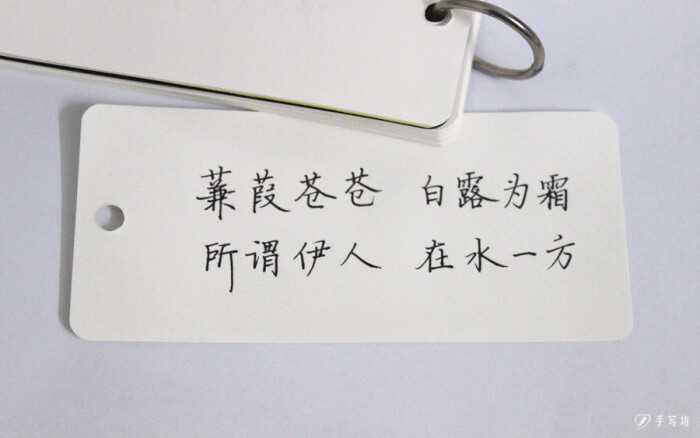 蒹葭苍苍 白露为霜
所谓伊人 在水一方
手写坊